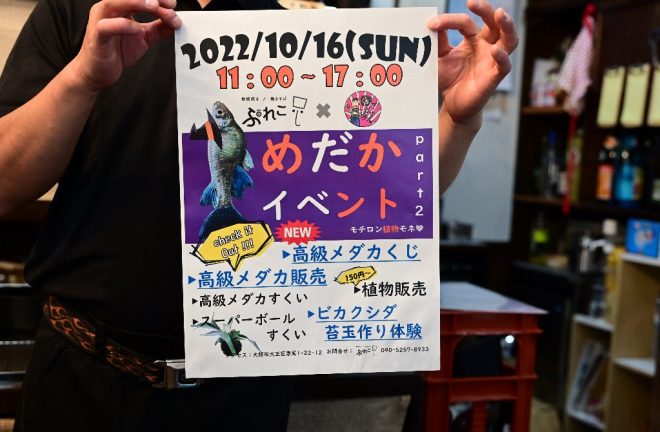 2022/10/16(SUN)
11:00～17:00
ぷれこ
×
めだか
イベント
part2
モチロン植物モネ
check it
Out !!!
NEW
▶高級メダカくじ
▶高級メダカ販売
150円～
▶植物販売
▶高級メダカすくい
▶スーパーボール
すくい
▶ビカクシダ
苔玉作り体験
セス:大阪市大正区泉尾1-22-12 お問合せ: ぷれこ 090-5259-8933